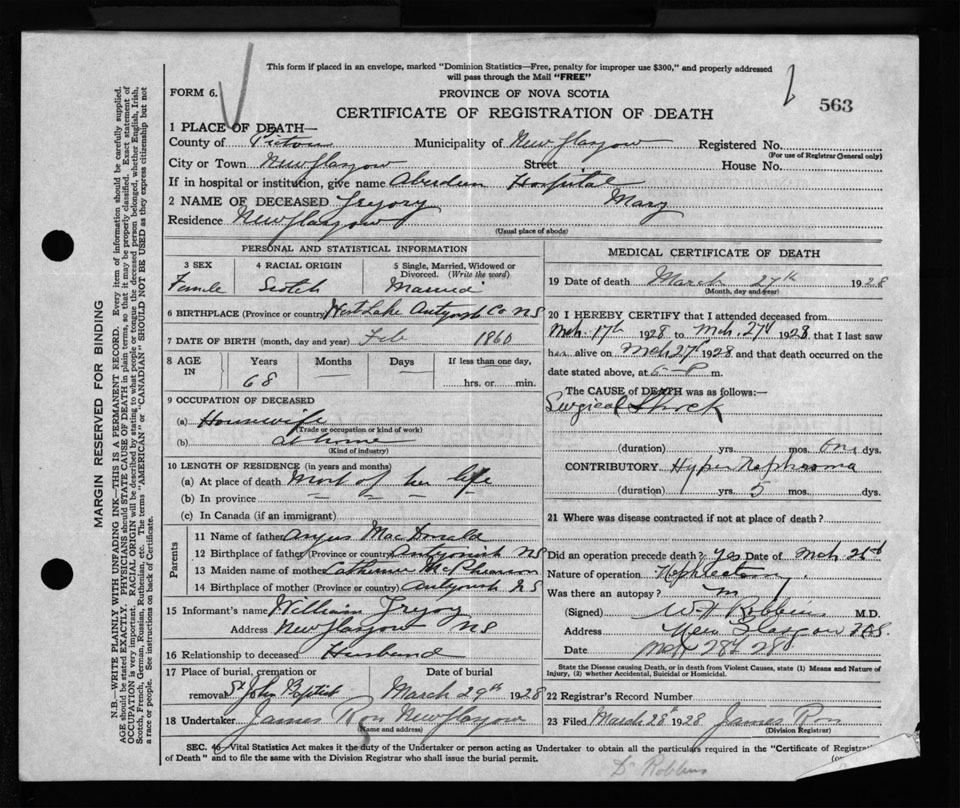 This form if placed in an envelope, marked "Dominion Statistics—Free, penalty for improper use $300," and properly addressed
will pass through the Mail "FREE"
FORM 6.
PROVINCE OF NOVA SCOTIA
563
CERTIFICATE OF REGISTRATION OF DEATH
1 PLACE OF DEATH—
County of Pictou Municipality of New Glasgow Registered No.
(For use of Registrar General only)
City or Town New Glasgow Street House No.
If in hospital or institution, give name Aberdeen Hospital
2 NAME OF DECEASED Gregory Mary
Residence New Glasgow
(Usual place of abode)
PERSONAL AND STATISTICAL INFORMATION
3 SEX 4 RACIAL ORIGIN 5 Single, Married, Widowed or Divorced. (Write the word)
Female Scotch Married
6 BIRTHPLACE (Province or country) West Lake Antygonish Co NS
7 DATE OF BIRTH (month, day and year) Feb 1860
8 AGE IN Years Months Days If less than one day,
68 — — hrs. or min.
9 OCCUPATION OF DECEASED
(a) Housewife
(Trade or occupation or kind of work)
(b) At home
(Kind of industry)
10 LENGTH OF RESIDENCE (in years and months)
(a) At place of death Most of her life
(b) In province — — —
(c) In Canada (if an immigrant)
Parents
11 Name of father Angus MacDonald
12 Birthplace of father (Province or country) Antygonish NS
13 Maiden name of mother Catherine McPherson
14 Birthplace of mother (Province or country) Antygonish NS
15 Informant's name William Gregory
Address New Glasgow NS
16 Relationship to deceased Husband
17 Place of burial, cremation or Date of burial
removal St John Baptist March 29th 1928
18 Undertaker James Ross New Glasgow
(Name and address)
MEDICAL CERTIFICATE OF DEATH
19 Date of death March 27th 1928
(Month, day and year)
20 I HEREBY CERTIFY that I attended deceased from
Mch. 17th 1928 to Mch. 27th 1928 that I last saw
her alive on Mch 27th 1928 and that death occurred on the
date stated above, at 6 P m.
The CAUSE of DEATH was as follows:
Surgical Shock
(duration) yrs. mos. One dys.
CONTRIBUTORY Hyper Nephroma
(duration) yrs. 5 mos. dys.
21 Where was disease contracted if not at place of death?
Did an operation precede death? Yes Date of Mch. 26th
Nature of operation
Was there an autopsy?
(Signed) W H Robbins M.D.
Address New Glasgow N.S.
Date Mch 28th 28
State the Disease causing Death, or in death from Violent Causes, state (1) Means and Nature of
Injury, (2) whether Accidental, Suicidal or Homicidal.
22 Registrar's Record Number
23 Filed March 28th 1928 James Ross
(Division Registrar)
SEC. 46—Vital Statistics Act makes it the duty of the Undertaker or person acting as Undertaker to obtain all the particulars required in the "Certificate of Registration
of Death" and to file the same with the Division Registrar who shall issue the burial permit.
Dr Robbins
MARGIN RESERVED FOR BINDING
N.B.—WRITE PLAINLY WITH UNFADING INK—THIS IS A PERMANENT RECORD. Every item of information should be carefully supplied.
AGE should be stated EXACTLY. PHYSICIANS should STATE CAUSE OF DEATH in plain terms, so that it may be properly classified. Exact statement of
OCCUPATION is very important. RACIAL ORIGIN will be described by stating to what people or tongue the deceased person belonged, whether English, Irish,
Scotch, French, German, Russian, Ruthenian, etc. The terms "AMERICAN" or "CANADIAN" SHOULD NOT BE USED as they express citizenship but not
a race or people. See instructions on back of Certificate.